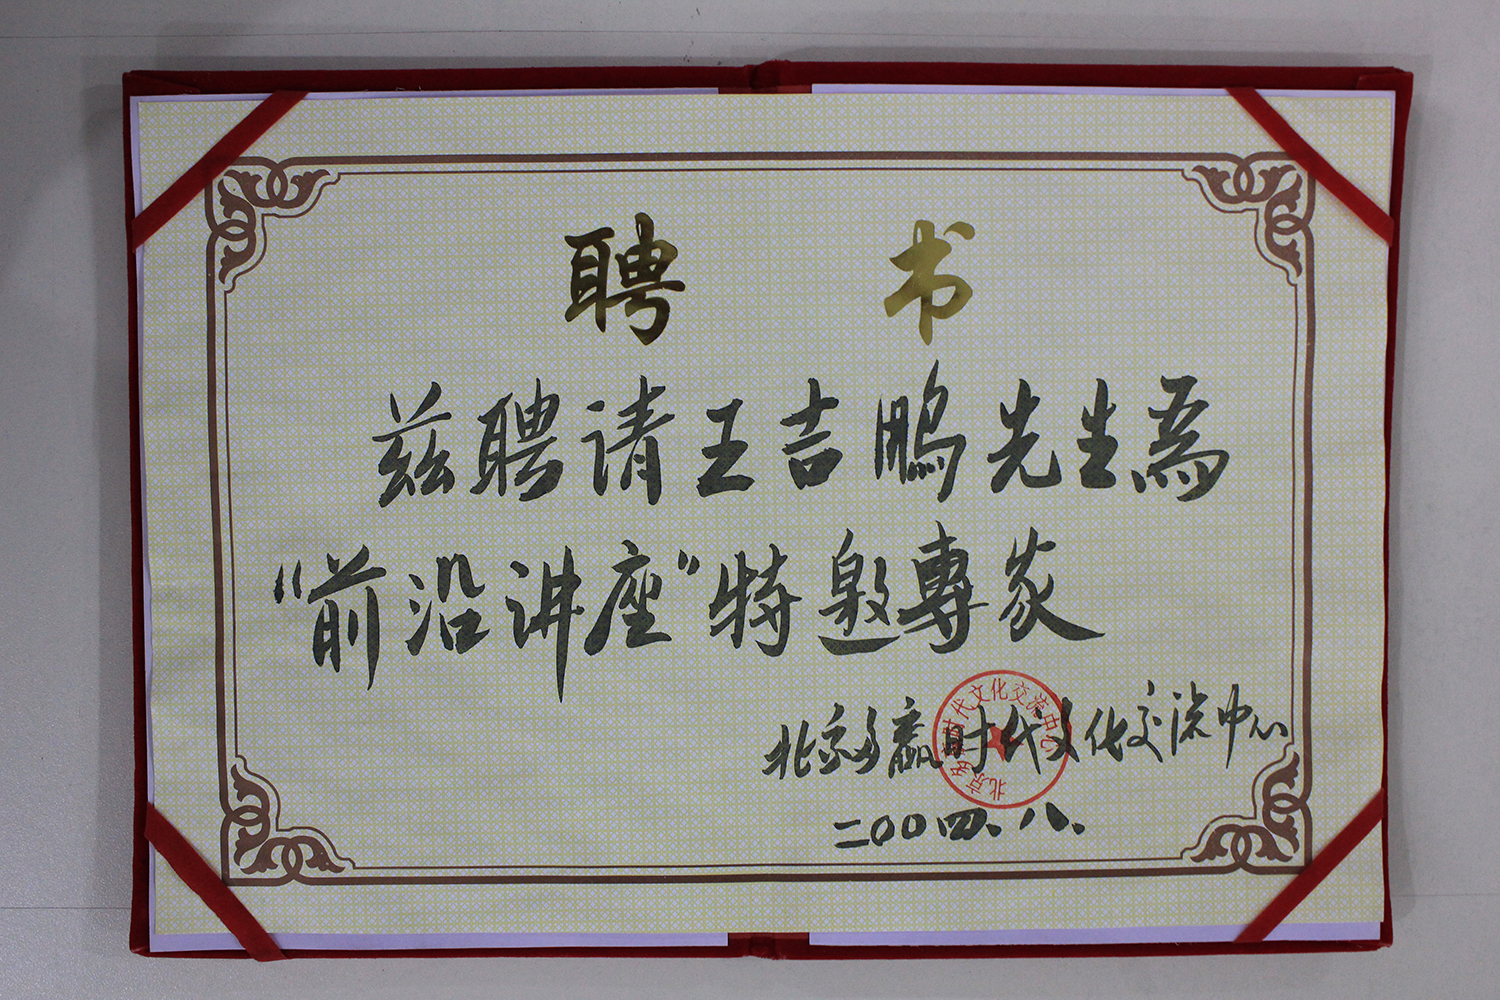 聘 书
兹聘请王吉鹏先生為
“前沿讲座”特邀專家
北京多赢时代文化交流中心
北京多赢时代文化交流中心
二00四、八、